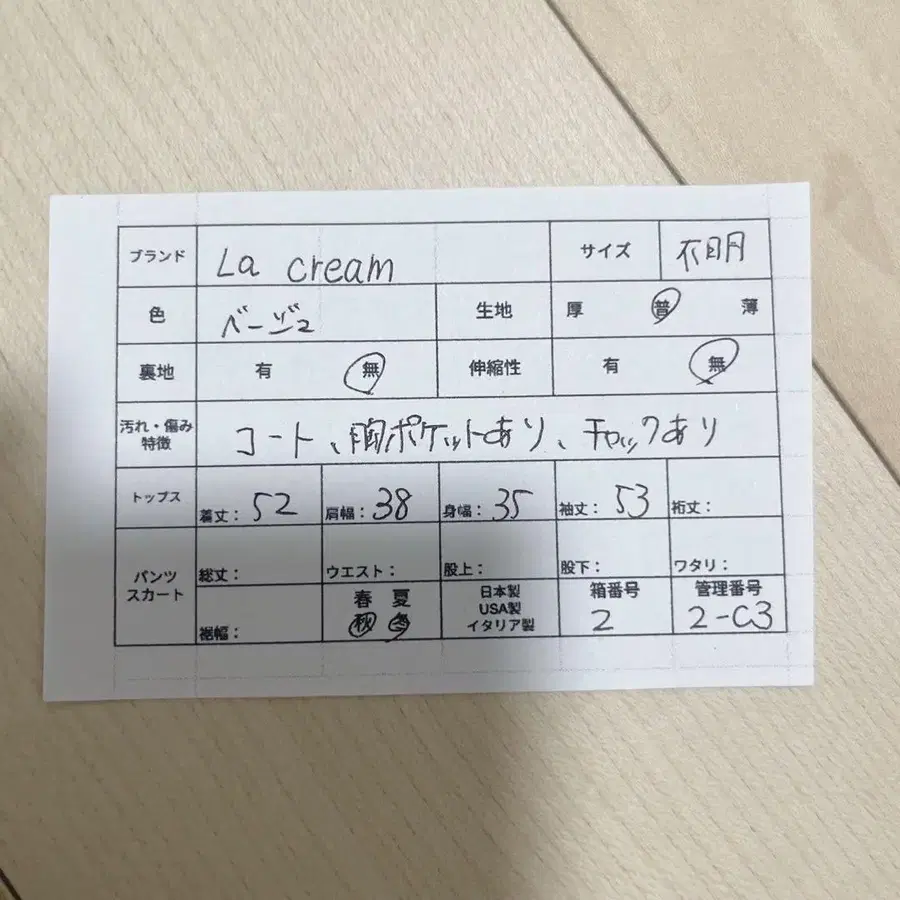 ブランド La cream サイズ 不明
色 ベージュ 生地 厚 普 薄
裏地 有 無 伸縮性 有 無
汚れ・傷み
特徴 コート、胸ポケットあり、チャックあり
トップス 着丈: 52 肩幅: 38 身幅: 35 袖丈: 53 裄丈:
パンツ
スカート 総丈: ウエスト: 股上: 股下: ワタリ:
裾幅: 春 夏
秋 冬
日本製
USA製
イタリア製
箱番号
2
管理番号
2-C3